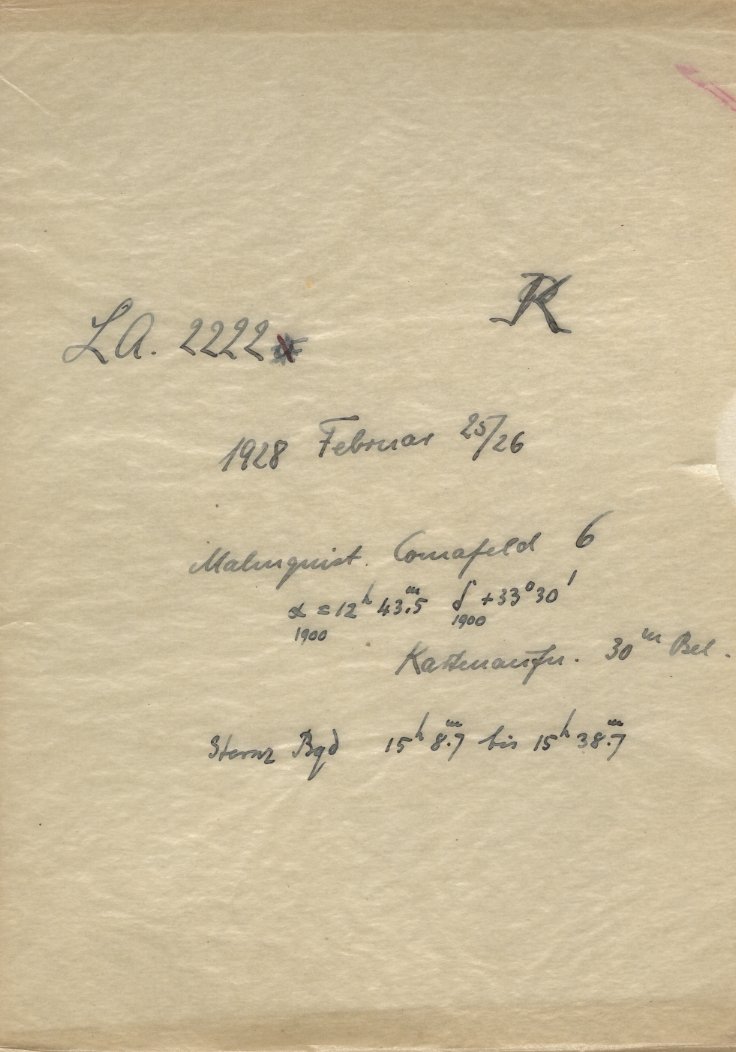 LA. 2222
K
1928 Februar 25/26
Malmquist. Comafeld 6
α = 12ʰ 43.ᵐ5 δ +33°30'
1900 1900
Kartenaufn. 30ᵐ Bel.
Sternz Bgd 15ʰ 8.ᵐ7 bis 15ʰ 38.ᵐ7